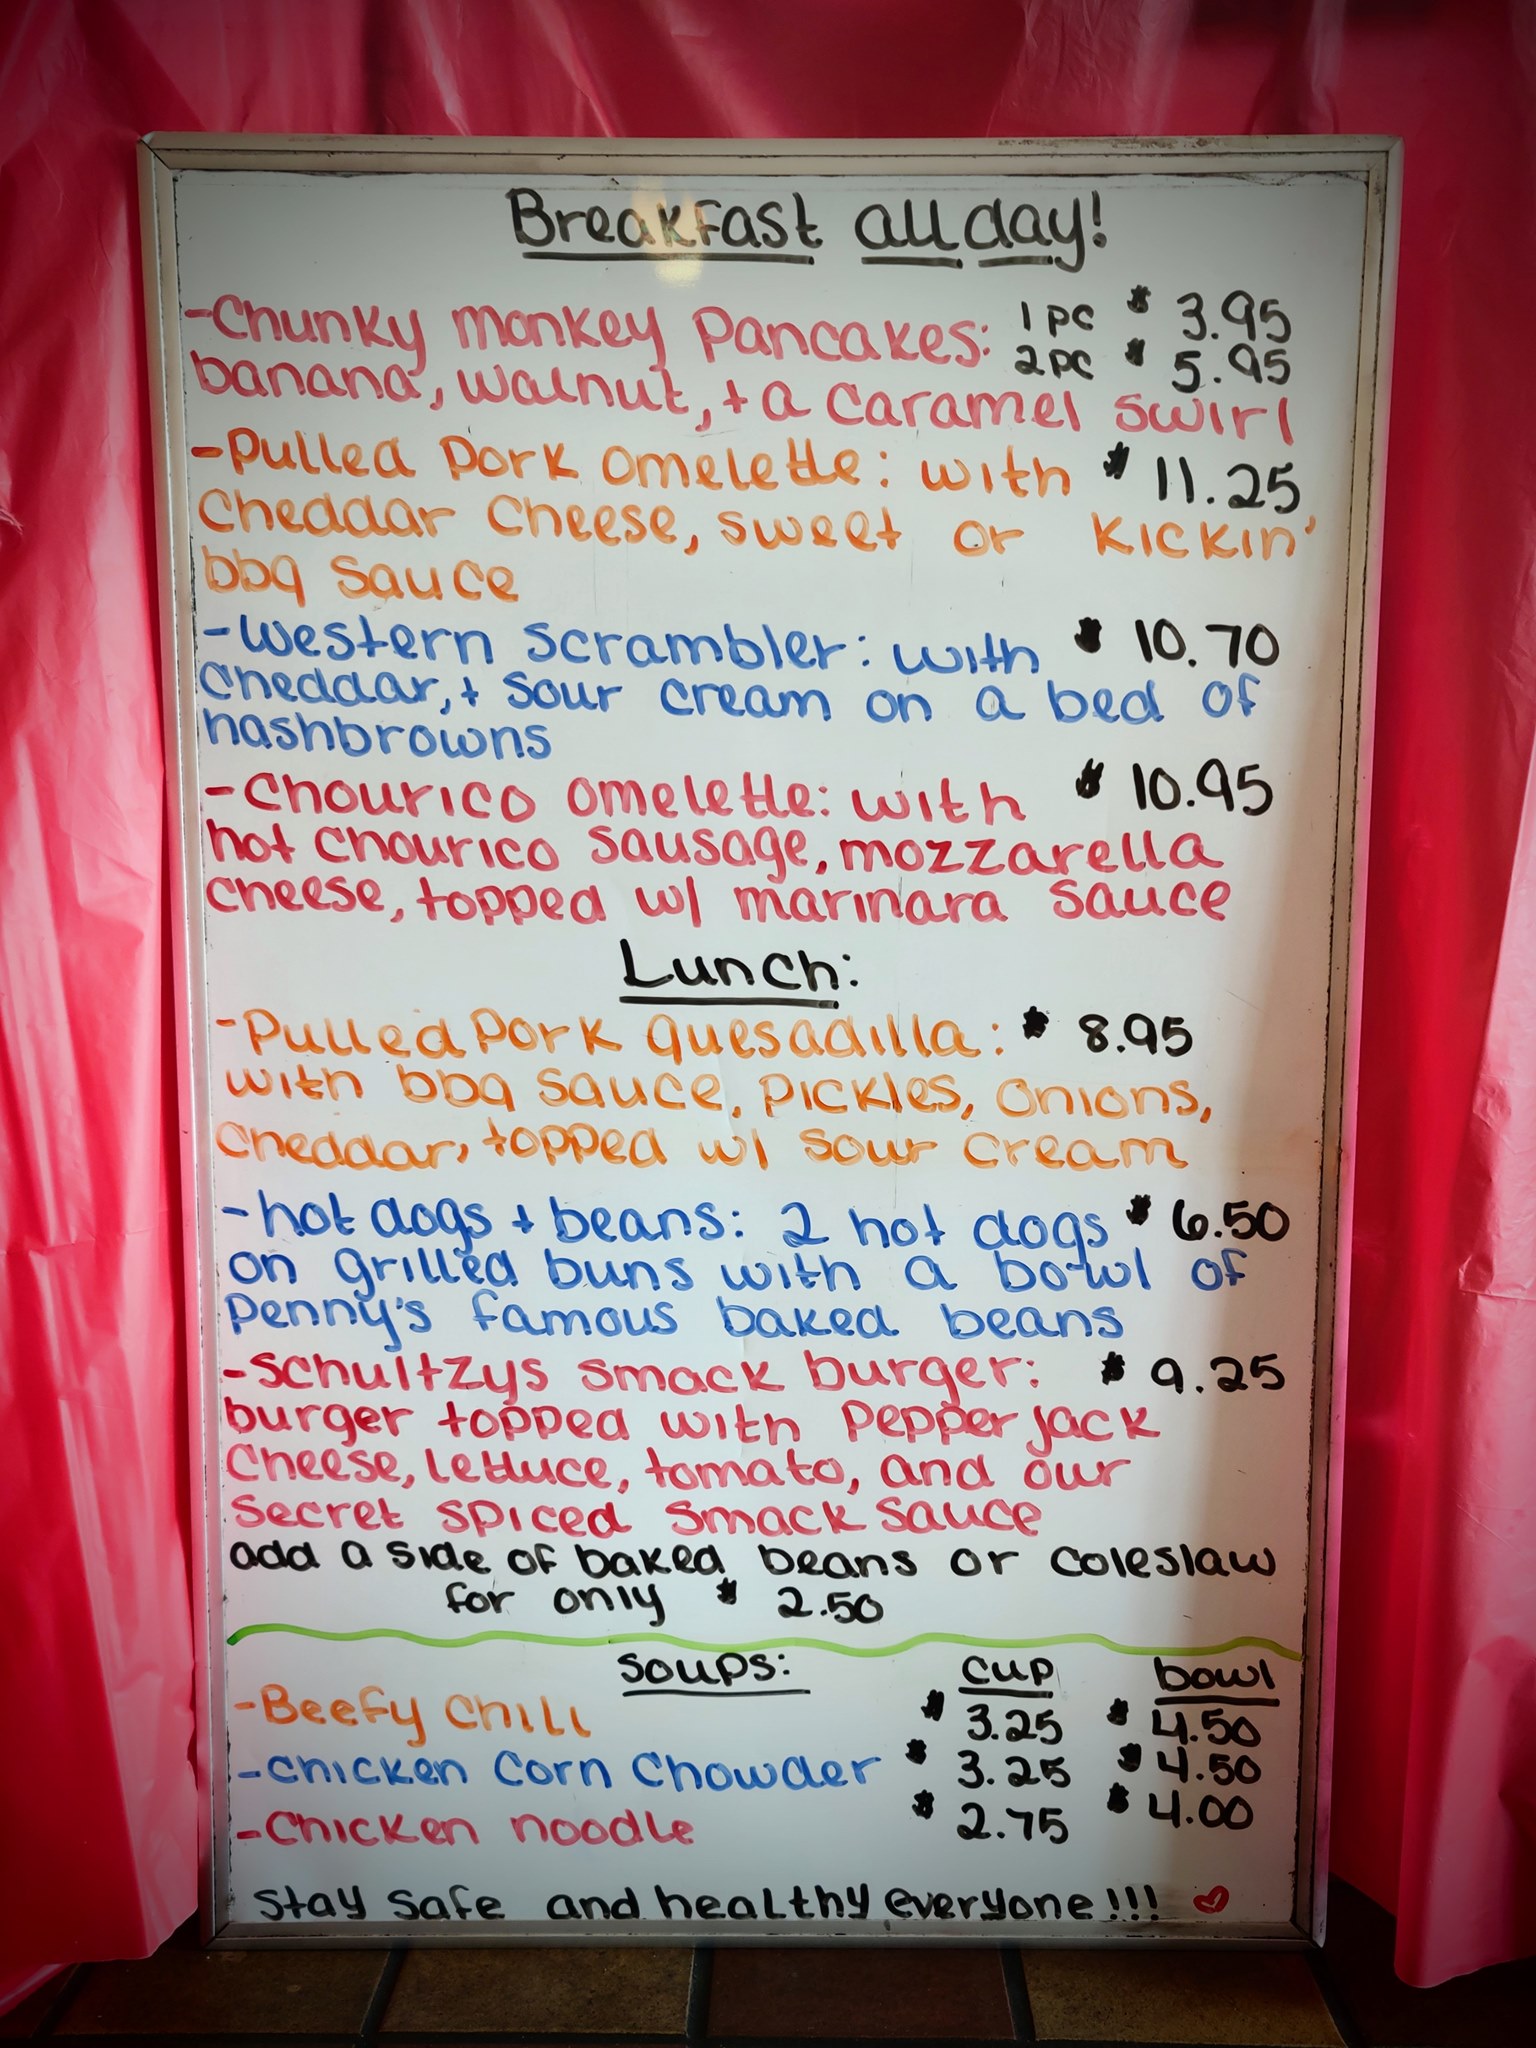 Breakfast all day!
-Chunky monkey pancakes: 1pc $ 3.95
2pc $ 5.95
banana, walnut, + a caramel swirl
-Pulled pork omelette: with $ 11.25
cheddar cheese, sweet or kickin'
bbq sauce
-Western scrambler: with $ 10.70
cheddar, + sour cream on a bed of
hashbrowns
-Chourico omelette: with $ 10.95
hot chourico sausage, mozzarella
cheese, topped w/ marinara sauce
Lunch:
-Pulled pork quesadilla: $ 8.95
with bbq sauce, pickles, onions,
cheddar, topped w/ sour cream
-hot dogs + beans: 2 hot dogs $ 6.50
on grilled buns with a bowl of
Penny's famous baked beans
-Schultzys smack burger: $ 9.25
burger topped with pepper jack
cheese, lettuce, tomato, and our
secret spiced smack sauce
add a side of baked beans or coleslaw
for only $ 2.50
soups: cup bowl
-Beefy Chili $ 3.25 $ 4.50
-Chicken Corn Chowder $ 3.25 $ 4.50
-Chicken noodle $ 2.75 $ 4.00
stay safe and healthy everyone!!!